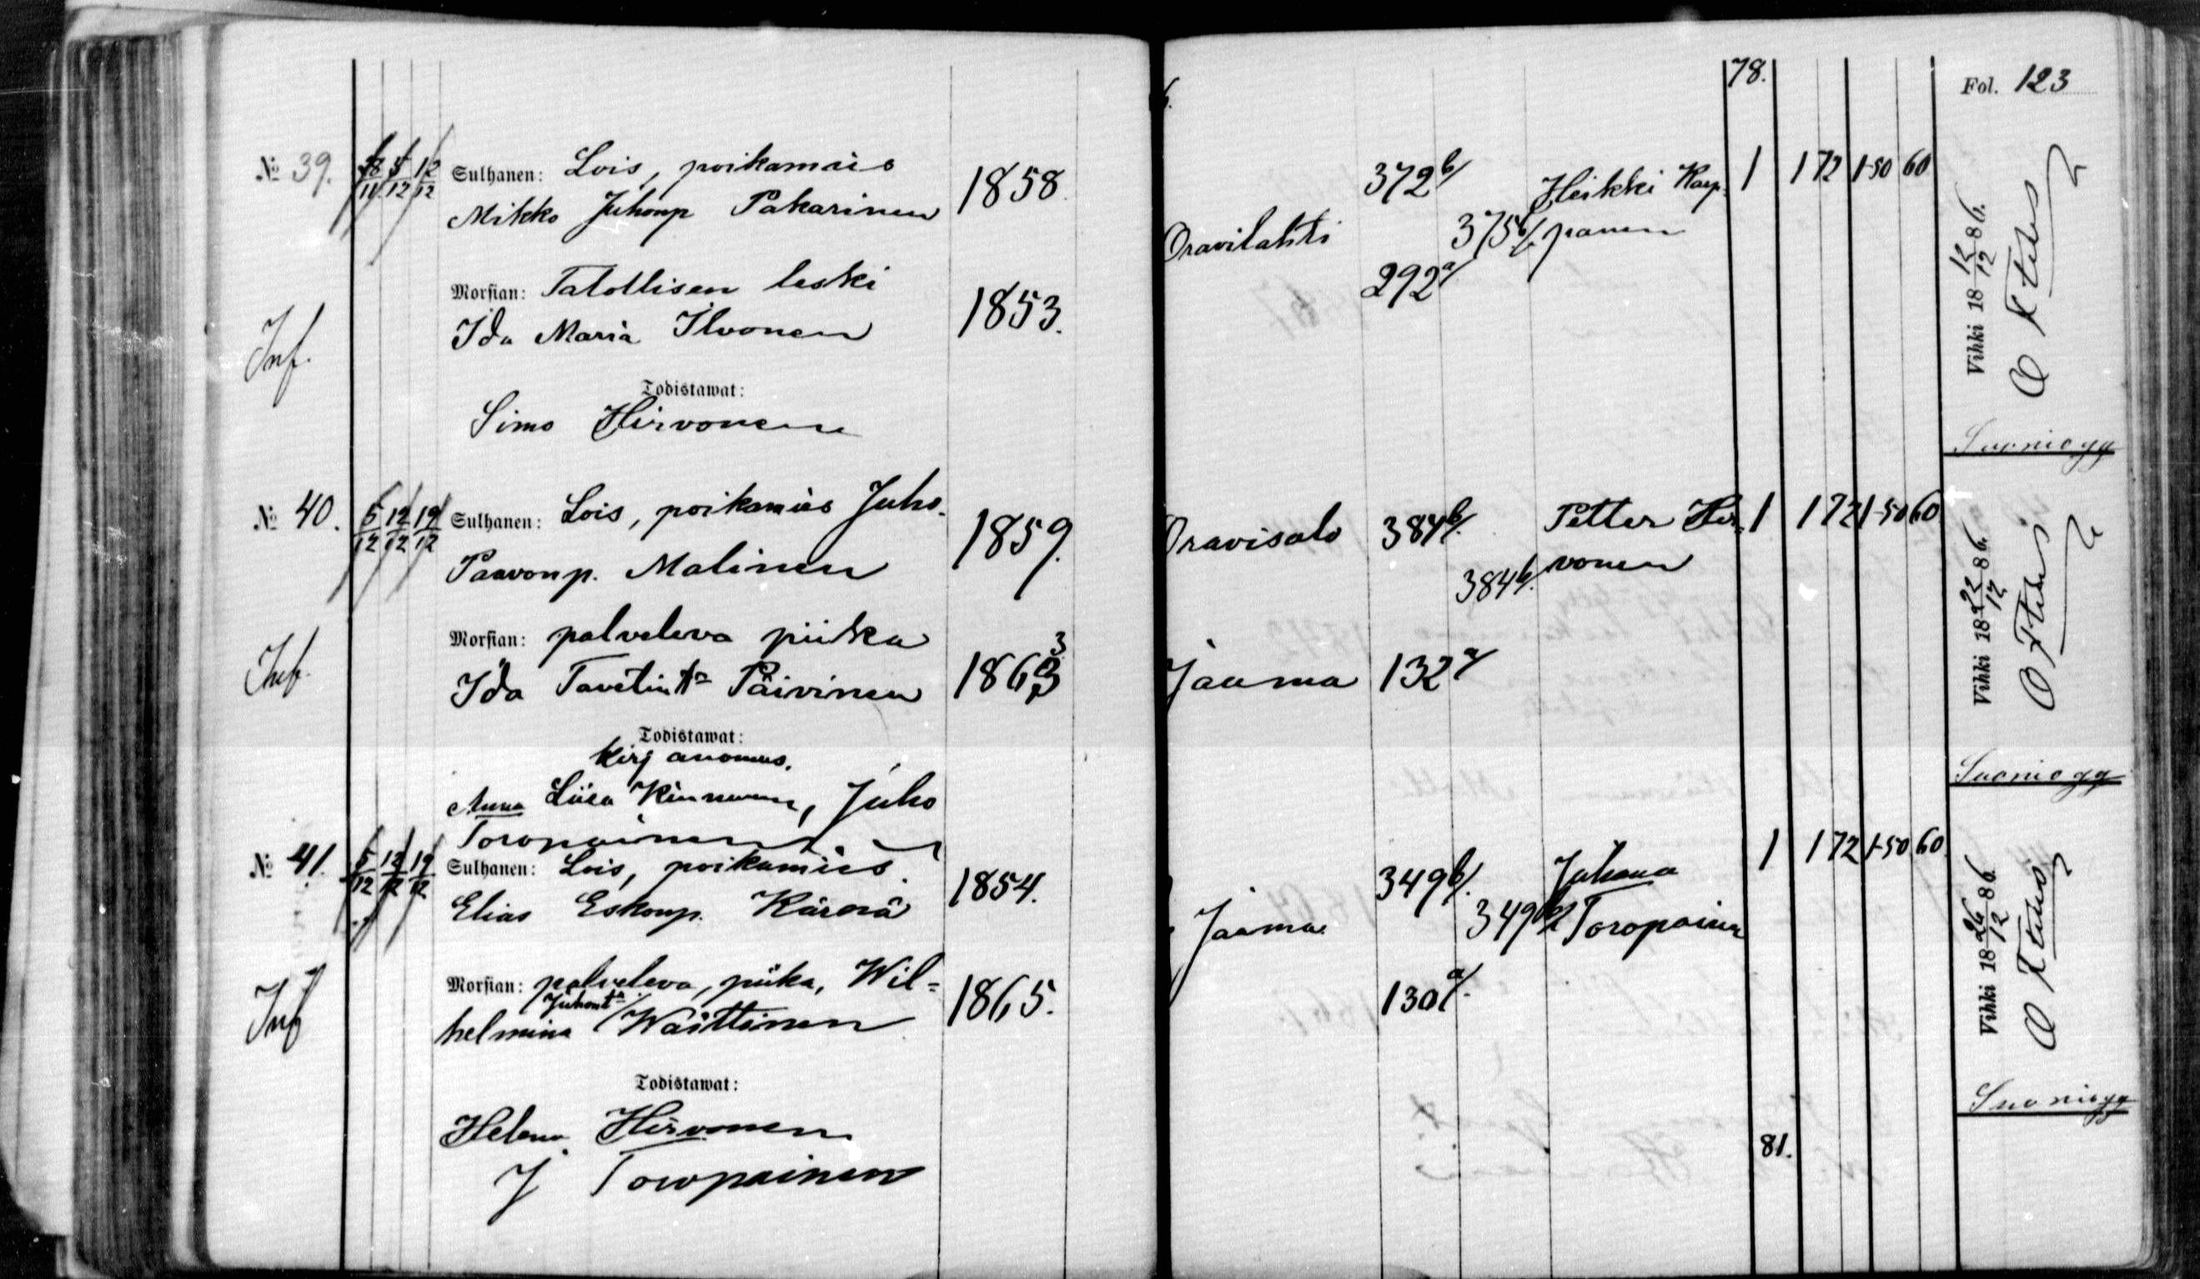 78.
Fol. 123
№ 39.
28/11 5/12 12/12
Sulhanen: Lois, poikamies
Mikko Juhonp Pakarinen
1858
Morsian: Talollisen leski
Ida Maria Ilvonen
1853.
Inf.
Todistawat:
Simo Hirvonen
Oravilahti
372 b/
375 b/
292 a/
Heikki Karp-
panen
1 172 1-50 60
Vihki 18 12/12 86.
Suonio gg
№ 40.
5/12 12/12 19/12
Sulhanen: Lois, poikamies Juho
Paavonp. Malinen
1859.
Morsian: palveleva piika
Ida Tavetint. Päivinen
1863
3
Inf.
Todistawat:
kirj anomus.
Anna Liisa Kinnunen, Juho
Toropainen
Oravisalo
384 b/.
384 b/.
Jaama 132 a/
Petter Hir-
vonen
1 172 1-50 60
Vihki 18 22/12 86.
Suonio gg
№ 41.
5/12 12/12 19/12
Sulhanen: Lois, poikamies
Elias Eskonp. Kärnä
1854.
Morsian: palveleva, piika, Wil-
Juhont.
helmina Waittinen
1865.
Inf
Todistawat:
Helena Hirvonen
J Toropainen
Jaama
349 b/.
349 b/
130 a/.
Juhana
Toropainen
1 172 1-50 60
Vihki 18 26/12 86.
Suonio gg
81.